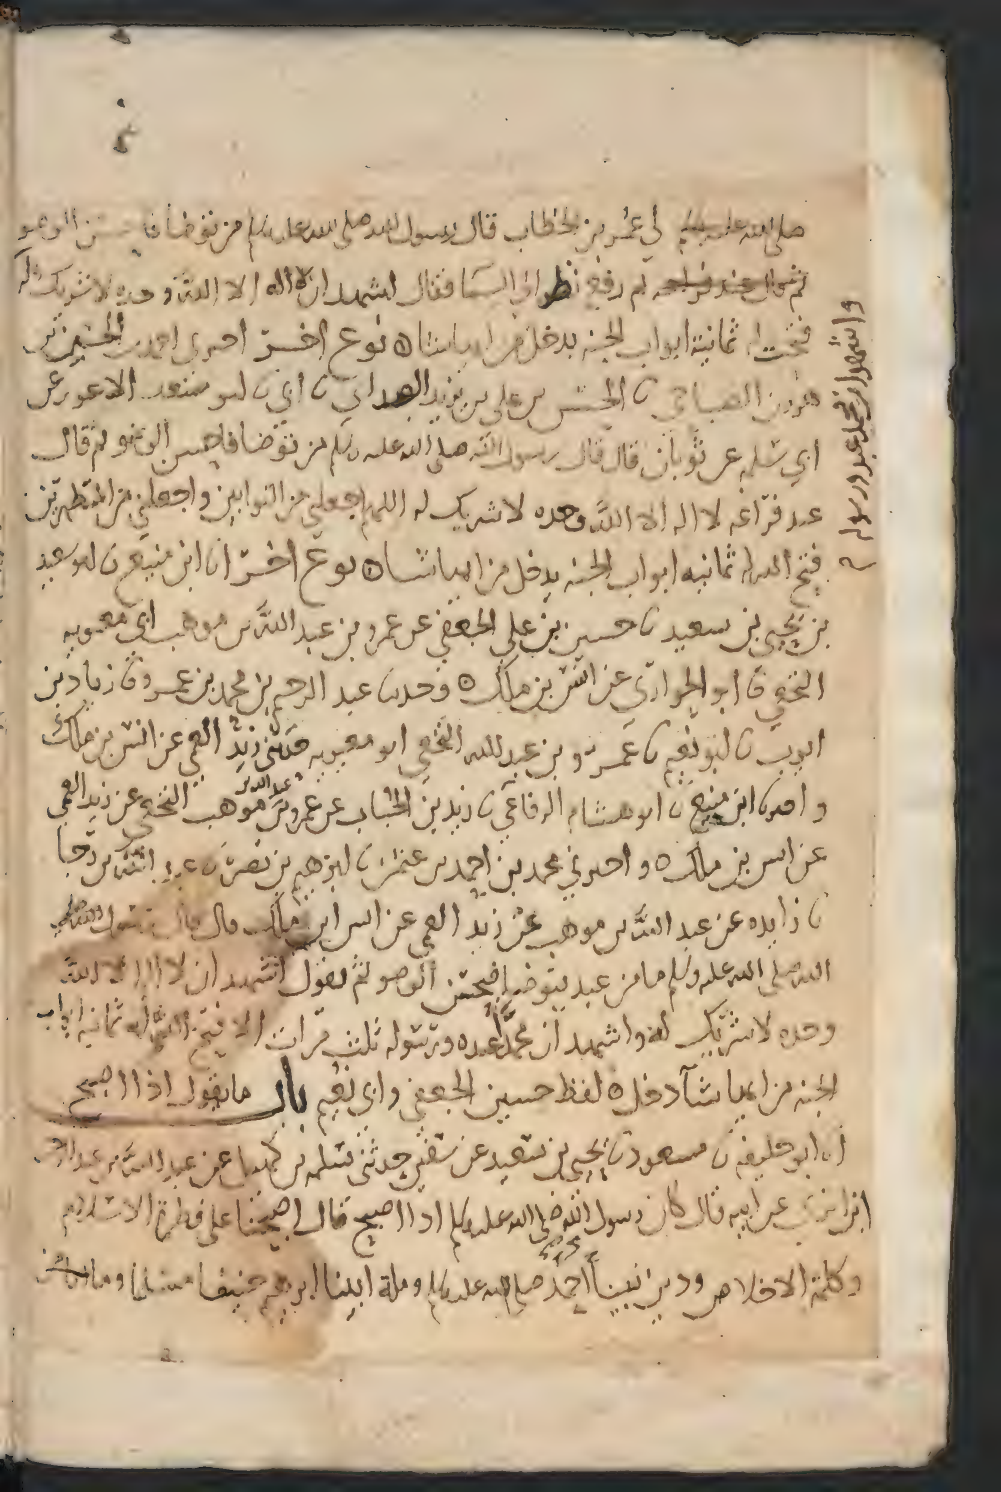 صلى الله عليه وسلم لي عمر بن الخطاب قال رسول الله صلى الله عليه وسلم من توضا فاحسن الوضو
ثم رفع نظره الى السما فقال اشهد ان لا اله الا الله وحده لا شريك له
واشهد ان محمدا عبده ورسوله
فتحت له ثمانية ابواب الجنه يدخل من ايها شا ه نوع اخر اخبرني احمد بن الحسين بن
هرون الصباحي ن الحسن بن علي بن يزيد الصداي ن ابي ن ابو سعد الاعور عن
ابي سلمه عن ثوبان قال قال رسول الله صلى الله عليه وسلم من توضا فاحسن الوضو ثم قال
عند فراغه لا اله الا الله وحده لا شريك له اللهم اجعلني من التوابين واجعلني من المتطهرين
فتح الله له ثمانيه ابواب الجنه يدخل من ايها شا ه نوع اخر انا ابن منيع ن ابو سعيد
بن يحيى بن سعيد ن حسين بن علي الجعفي عن عمرو بن عبد الله بن موهب ابي معويه
النخعي ن ابو الحواري عن انس بن ملك ه وحدثنا عبد الرحيم بن محمد بن عمرو ن زياد بن
ايوب ن ابو نعيم ن عمرو بن عبد الله النخعي ابو معويه حدثني زيد العمي عن انس بن ملك
و ابن منيع ن ابو هشام الرفاعي ن زيد بن الحباب عن عمرو بن عبد الله بن موهب النخعي عن زيد العمي
عن انس بن ملك ه واخبرني محمد بن احمد بن عثمن ن ابرهيم بن نصر ن عبد الله بن رجا
ن زايده عن عبد الله بن موهب عن زيد العمي عن انس ابن ملك قال قال رسول
الله صلى الله عليه وسلم ما من عبد يتوضا فيحسن الوضو ثم يقول اشهد ان لا اله الا الله
وحده لا شريك له واشهد ان محمدا عبده ورسوله ثلث مرات الا فتح الله له ثمانيه ابواب
الجنه من ايها شآ دخل ه لفظ حسين الجعفي وابي نعيم باب ما يقول اذا اصبح
انا ابو خليفه ن مسدد ن يحيى بن سعيد عن سفين حدثني سلمه بن كهيل عن عبد الله بن عبد الرحمن
ابن ابزي عن ابيه قال كان رسول الله صلى الله عليه وسلم اذا اصبح قال اصبحنا على فطرة الاسلام
وكلمة الاخلاص ودين نبينا محمد صلى الله عليه وسلم وملة ابينا ابرهيم حنيفا مسلما وما كان من